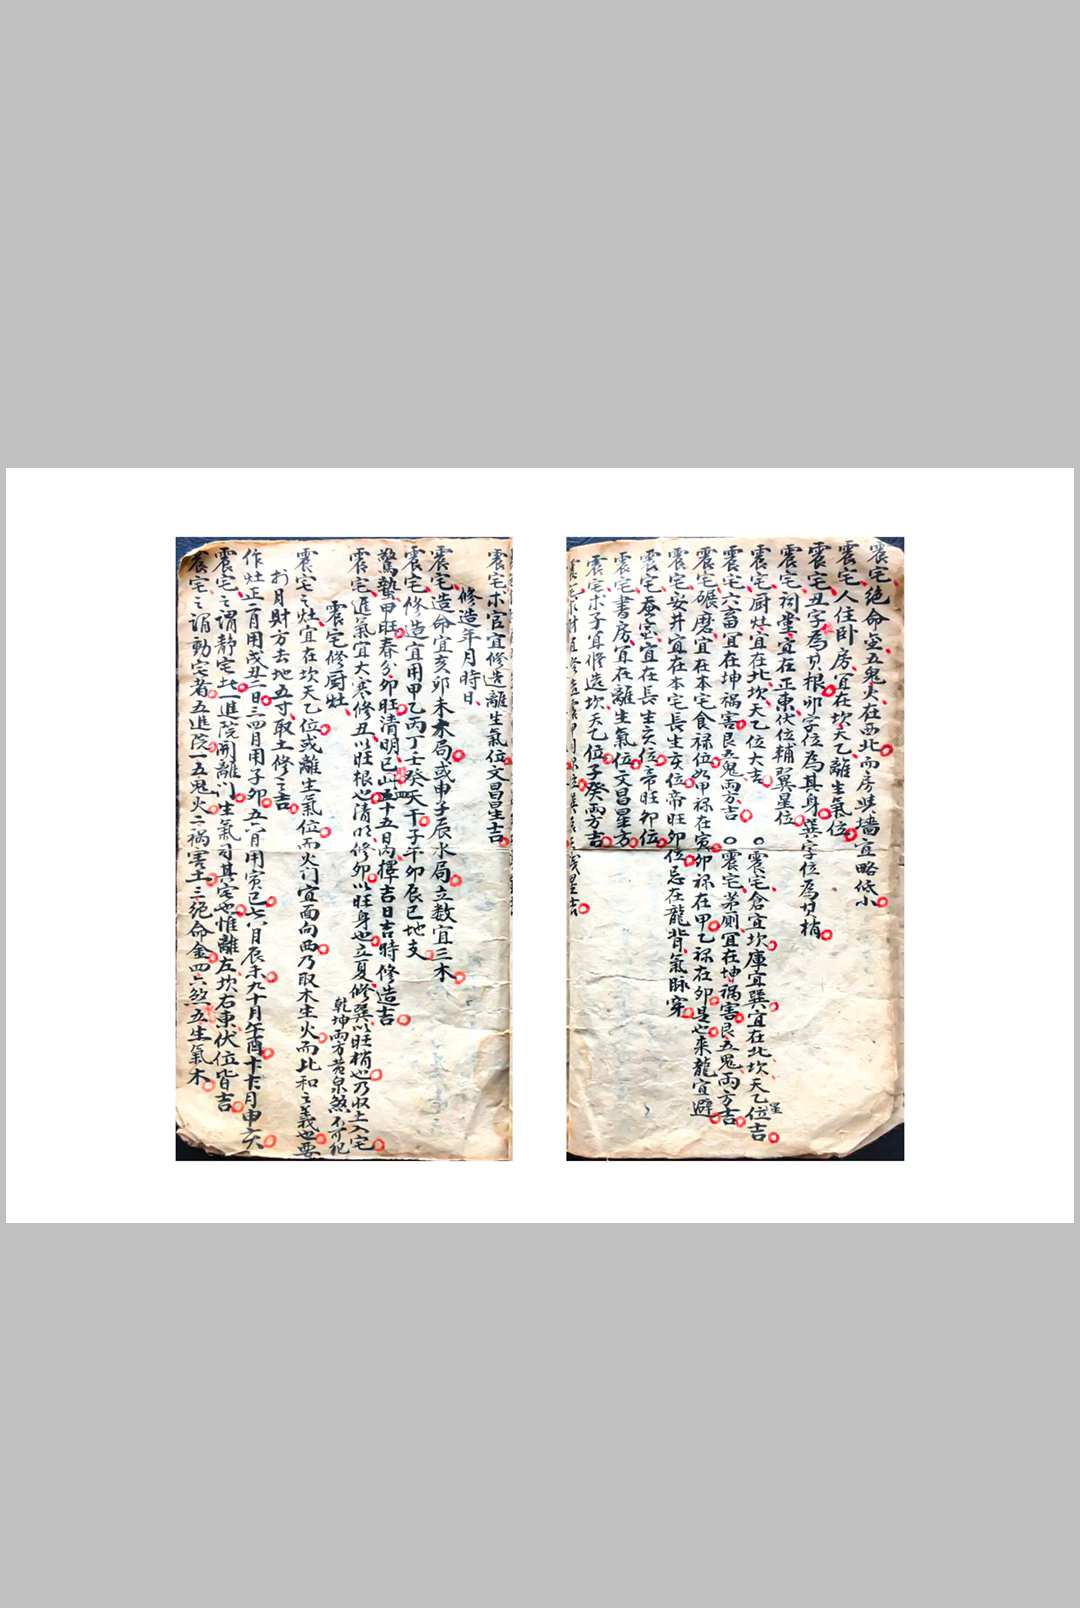 震宅絶命金五鬼火在西北而房宅墙宜略低小
震宅人住卧房宜在坎天乙離生氣位
震宅丑字為其根卯字位為其身巽字位為其梢
震宅祠堂宜在正東伏位輔巽星位
震宅厨灶宜在北坎天乙位大吉 震宅倉宜坎庫宜巽宜在北坎天乙星位吉
震宅六畜宜在坤祸害艮五鬼兩方吉 震宅茅厠宜在坤祸害艮五鬼兩方吉
震宅碾磨宜在本宅食禄位如甲禄在寅卯禄在甲乙禄在卯是也来龍宜避
震宅安井宜在本宅長生亥位帝旺卯位忌在龍背氣脉穿
震宅蚕室宜在長生亥位帝旺卯位
震宅書房宜在離生氣位文昌星方
震宅求子宜修造坎天乙位子癸兩方吉
震宅求官宜修造離生氣位文昌星吉
修造年月時日
震宅造命宜亥卯未木局或申子辰水局立数宜三木
震宅修造宜用甲乙丙丁壬癸天干子午卯辰巳地支
驚蟄甲旺春分卯旺清明巳四十五日内擇吉日吉時修造吉
震宅進氣宜大寒修丑以旺根也清明修卯以旺身也立夏修巽以旺梢也乃収土入宅
乾坤兩方黄泉煞不可犯
震宅修厨灶
震宅之灶宜在坎天乙位或離生氣位而火门宜面向西乃取木生火而比和之義也要
於月財方去地五寸取土修之吉
作灶正二月用戌丑二日三四月用子卯五六月用寅巳七八月辰未九十月午酉十十月申亥
震宅之謂静宅此一進院開離以生氣司其宅也惟離左坎右東伏位皆吉
震宅之謂動宅者五進院一五鬼火二祸害土三絶命金四六煞五生氣木